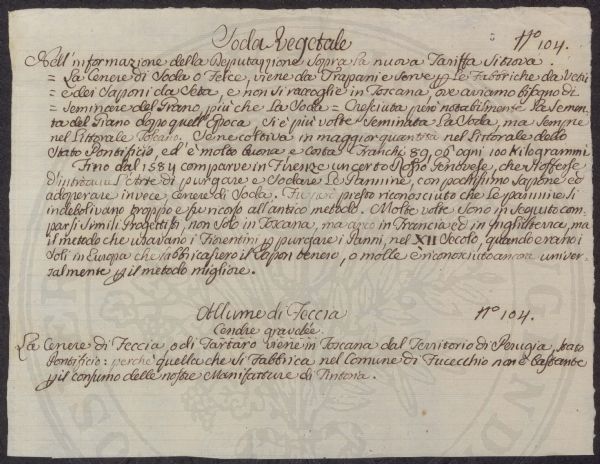 Soda Vegetale N° 104.
Nell'informazione della Deputazione sopra la nuova Tariffa si trova.
= La Cenere di Soda o Felce, viene da Trapani e serve p le Fabbriche da Vetri
= e dei Saponi da Seta, e non si raccoglie in Toscana, ove aviamo bisogno di
= semincere del Grano, più che La Soda = Cresciuta però notabilmente La Semen-
ta del Grano dopo quell'Epoca si è più volte seminata La Soda, ma sempre
nel Littorale Toscano. Se ne coltiva in maggior quantità nel Littorale dello
Stato Pontificio, ed è molto buona e costa Franchi 89, 06 ogni 100 Kilogrammi
Fino dal 1584 comparve in Firenze un certo Genovese, che s'offerse
d'introdurre L'Arte di purgare e sodare Le Pannine, con pochissimo sapone ed
adoperare invece Cenere di Soda. Fu però presto riconosciuto che Le pannine si
indebolivano troppo e fu ricorso all'antico metodo. Molte volte sono in seguito com-
parsi simili Progettisti, non solo in Toscana, ma anco in Francia ed in Inghilterra, ma
il metodo che usavano i Fiorentini p purgare i Panni, nel XII Secolo, quando erano i
soli in Europa che fabbricassero il Sapon tenero, o molle è riconosciuto ancora univer-
salmente p il metodo migliore.
Allume di Feccia N° 104.
Cendre gravelée.
La Cenere di Feccia, o di Tartaro viene in Toscana dal Territorio di Perugia, Stato
Pontificio: perchè quella che si Fabbrica nel Comune di Fucecchio non è bastante
p il consumo delle nostre Manifatture di Tintoria.